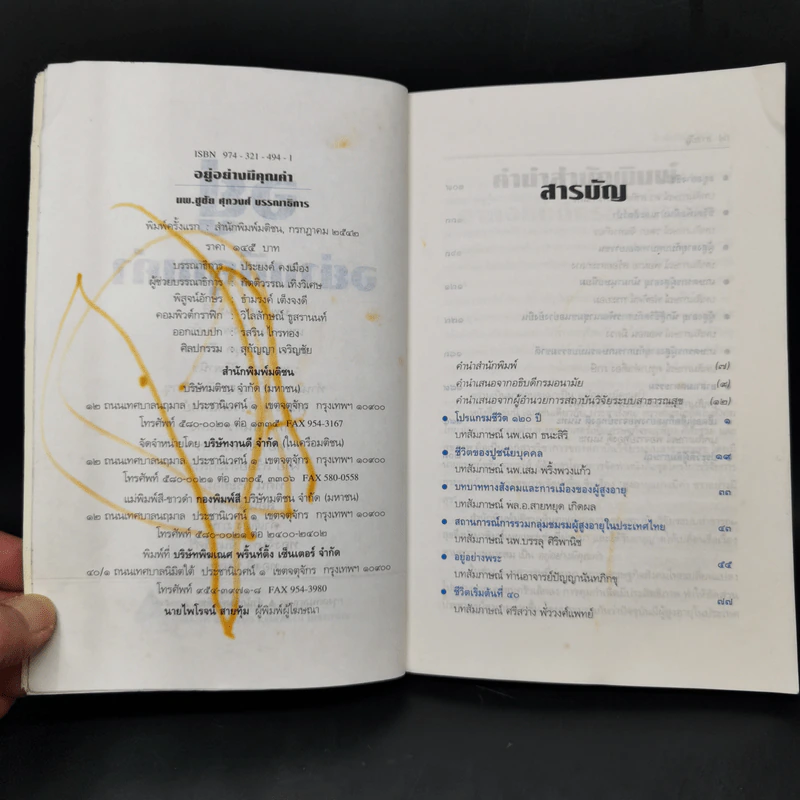 ISBN 974 - 321 - 494 - 1
อยู่อย่างมีคุณค่า
นพ.ชูชัย ศุภวงศ์ บรรณาธิการ
พิมพ์ครั้งแรก : สำนักพิมพ์มติชน, กรกฎาคม ๒๕๔๒
ราคา ๑๔๕ บาท
บรรณาธิการ : ประยงค์ คงเมือง
ผู้ช่วยบรรณาธิการ : กิตติวรรณ เทิงวิเศษ
พิสูจน์อักษร : ชำมรงค์ เต็งจงดี
คอมพิวต์กราฟิก : วิไลลักษณ์ ธูสรานนท์
ออกแบบปก : รสริน ไกรทอง
ศิลปกรรม : สุกัญญา เจริญชัย
สำนักพิมพ์มติชน
บริษัทมติชน จำกัด (มหาชน)
๑๒ ถนนเทศบาลนฤมาล ประชานิเวศน์ ๑ เขตจตุจักร กรุงเทพฯ ๑๐๙๐๐
โทรศัพท์ ๕๘๐-๐๐๒๑ ต่อ ๑๒๓๕ FAX 954-3167
จัดจำหน่ายโดย บริษัทงานดี จำกัด (ในเครือมติชน)
๑๒ ถนนเทศบาลนฤมาล ประชานิเวศน์ ๑ เขตจตุจักร กรุงเทพฯ ๑๐๙๐๐
โทรศัพท์ ๕๘๐-๐๐๒๑ ต่อ ๓๓๐๕, ๓๓๐๖ FAX 580-0558
แม่พิมพ์สี-ขาวดำ กองพิมพ์สี บริษัทมติชน จำกัด (มหาชน)
๑๒ ถนนเทศบาลนฤมาล ประชานิเวศน์ ๑ เขตจตุจักร กรุงเทพฯ ๑๐๙๐๐
โทรศัพท์ ๕๘๐-๐๐๒๑ ต่อ ๒๔๐๐-๒๔๐๒
พิมพ์ที่ บริษัทพิฆเณศ พริ้นท์ติ้ง เซ็นเตอร์ จำกัด
๔๐/๑ ถนนเทศบาลนิมิตใต้ ประชานิเวศน์ ๑ เขตจตุจักร กรุงเทพฯ ๑๐๙๐๐
โทรศัพท์ ๙๕๔-๓๙๗๑-๘ FAX 954-3980
นายไพโรจน์ สายทุ้ม ผู้พิมพ์ผู้โฆษณา
สารบัญ
คำนำสำนักพิมพ์ (๗)
คำนำเสนอจากอธิบดีกรมอนามัย (๙)
คำนำเสนอจากผู้อำนวยการสถาบันวิจัยระบบสาธารณสุข (๑๒)
• โปรแกรมชีวิต ๑๒๐ ปี ๑
บทสัมภาษณ์ นพ.เฉก ธนะสิริ
• ชีวิตของปูชนียบุคคล ๑๙
บทสัมภาษณ์ นพ.เสม พริ้งพวงแก้ว
• บทบาททางสังคมและการเมืองของผู้สูงอายุ ๓๓
บทสัมภาษณ์ พล.อ.สายหยุด เกิดผล
• สถานการณ์การรวมกลุ่มชมรมผู้สูงอายุในประเทศไทย ๔๓
บทสัมภาษณ์ นพ.บรรลุ ศิริพานิช
• อยู่อย่างพระ ๕๕
บทสัมภาษณ์ ท่านอาจารย์ปัญญานันทภิกขุ
• ชีวิตเริ่มต้นที่ ๔๐ ๗๗
บทสัมภาษณ์ ศรีสว่าง พั่ววงศ์แพทย์